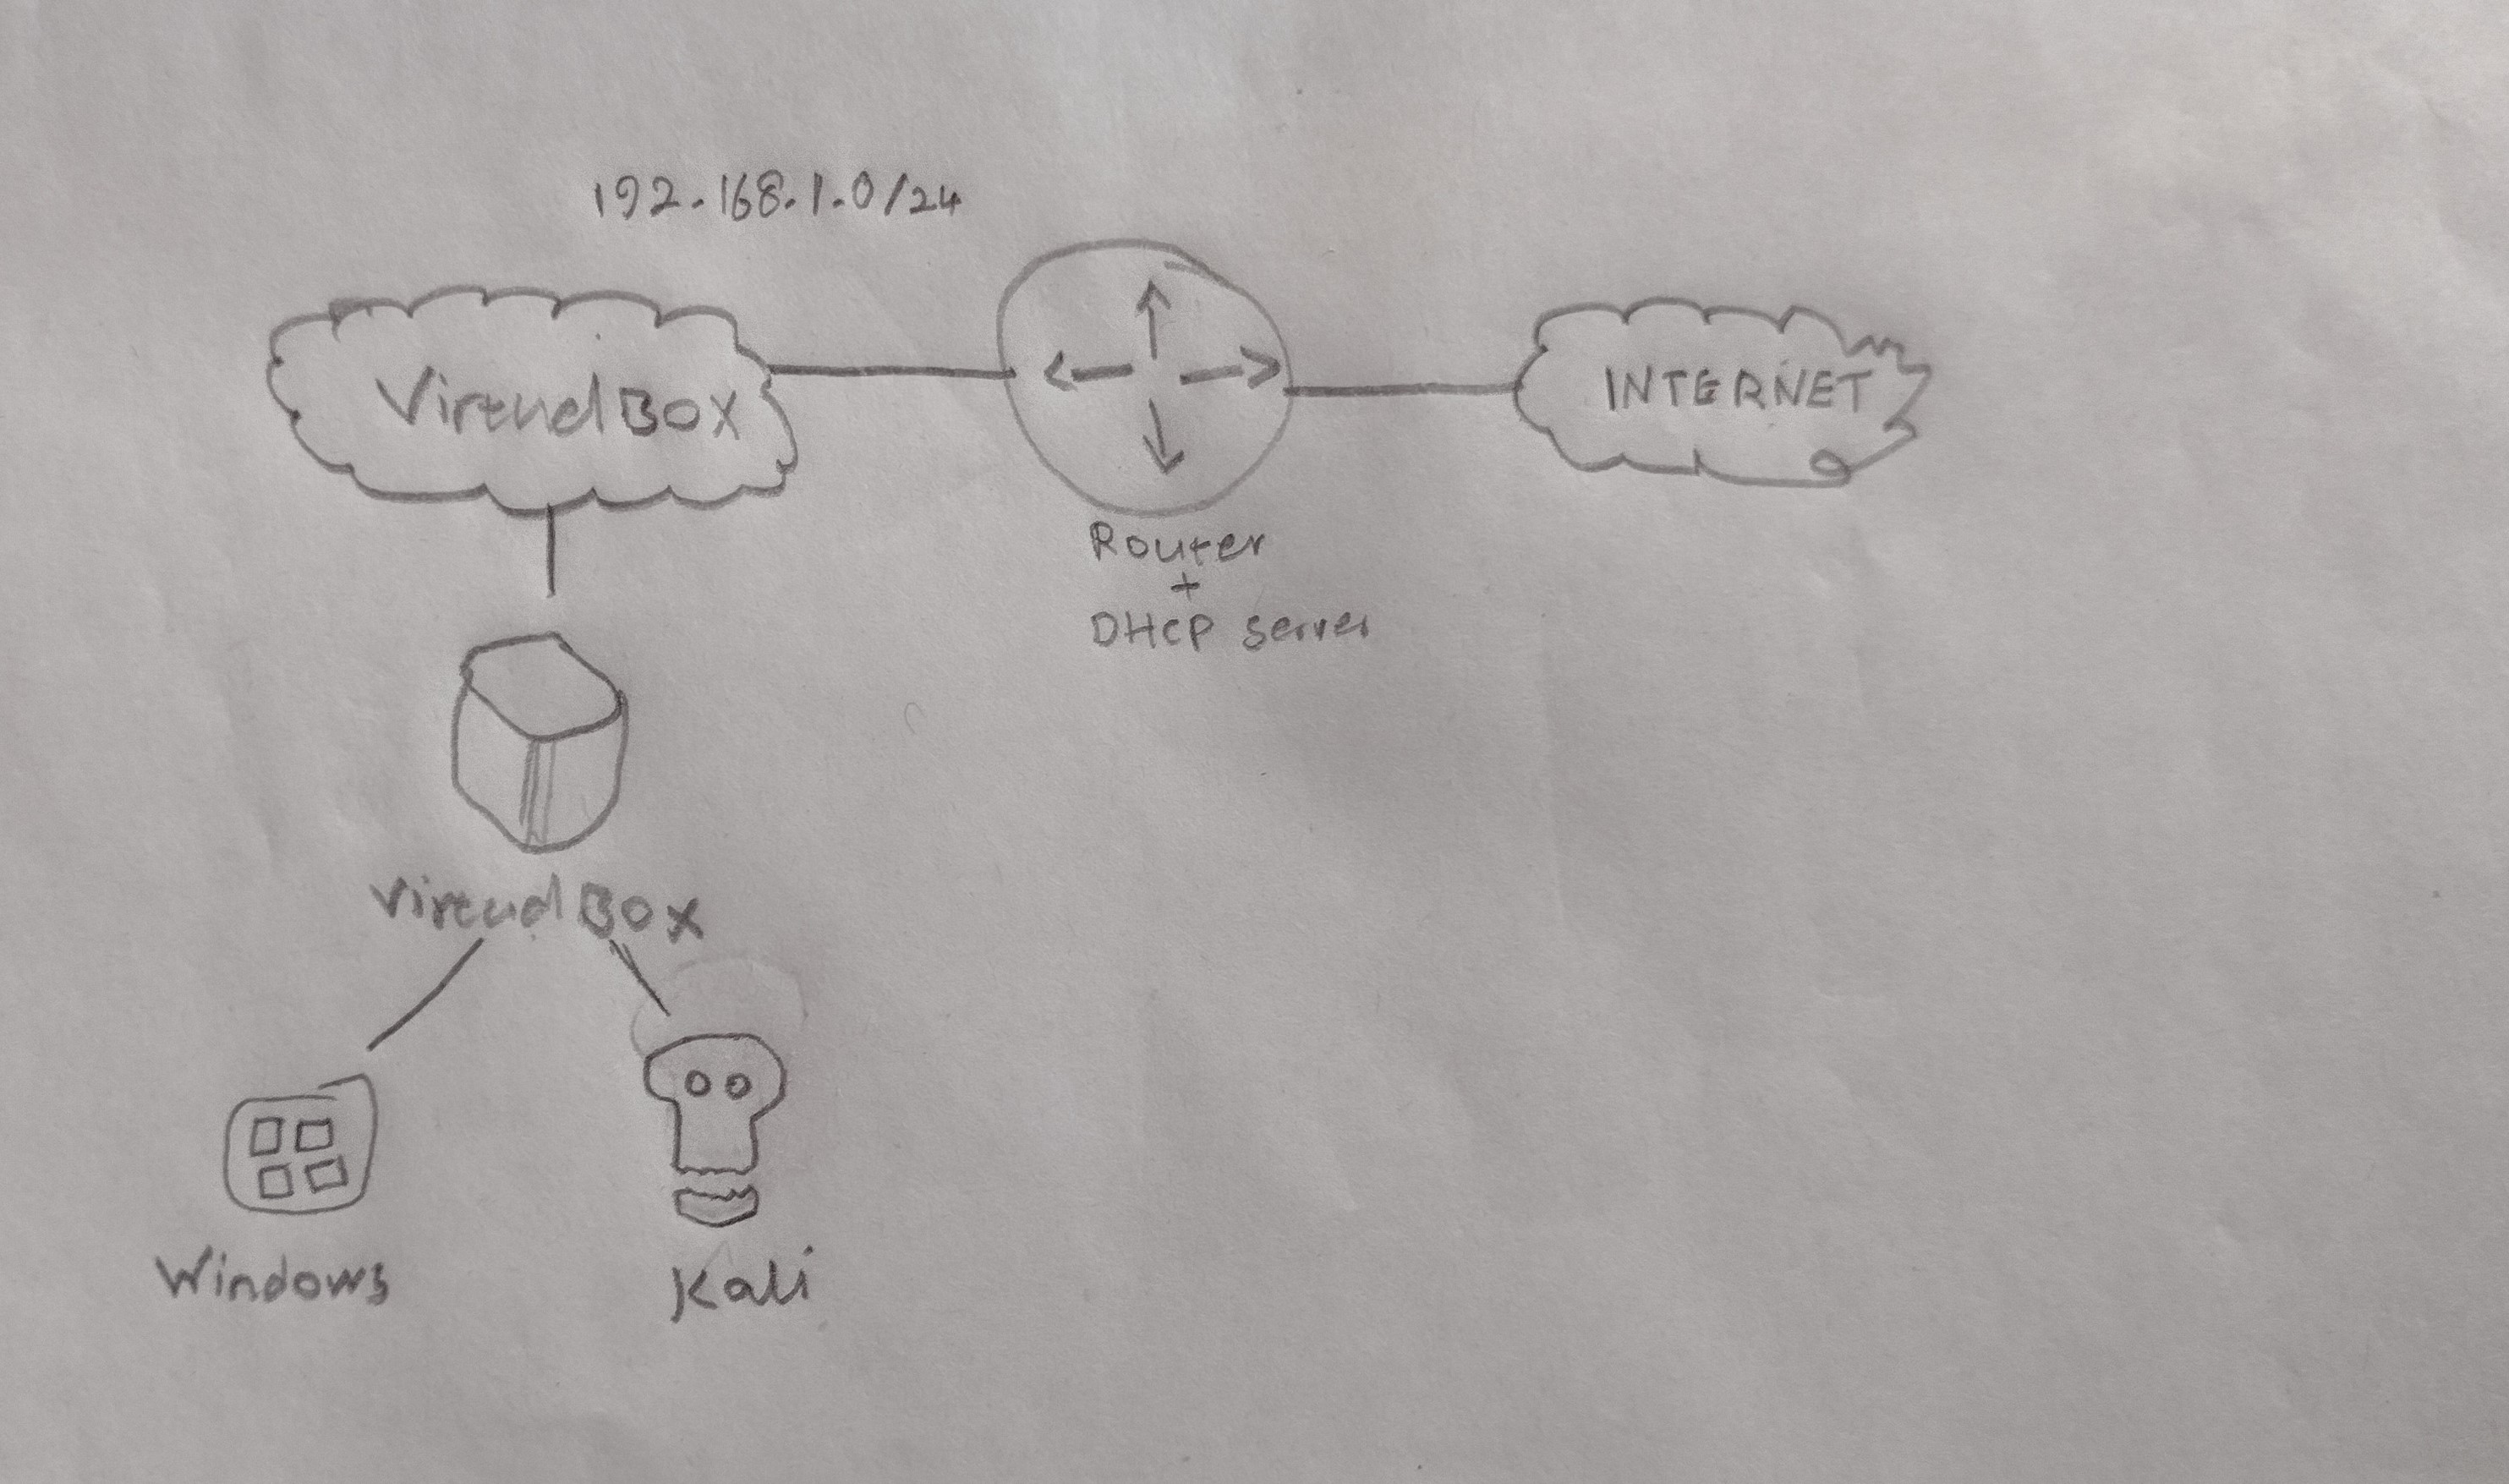 192.168.1.0/24
VirtualBox
INTERNET
Router
+
DHCP server
VirtualBox
Windows
Kali